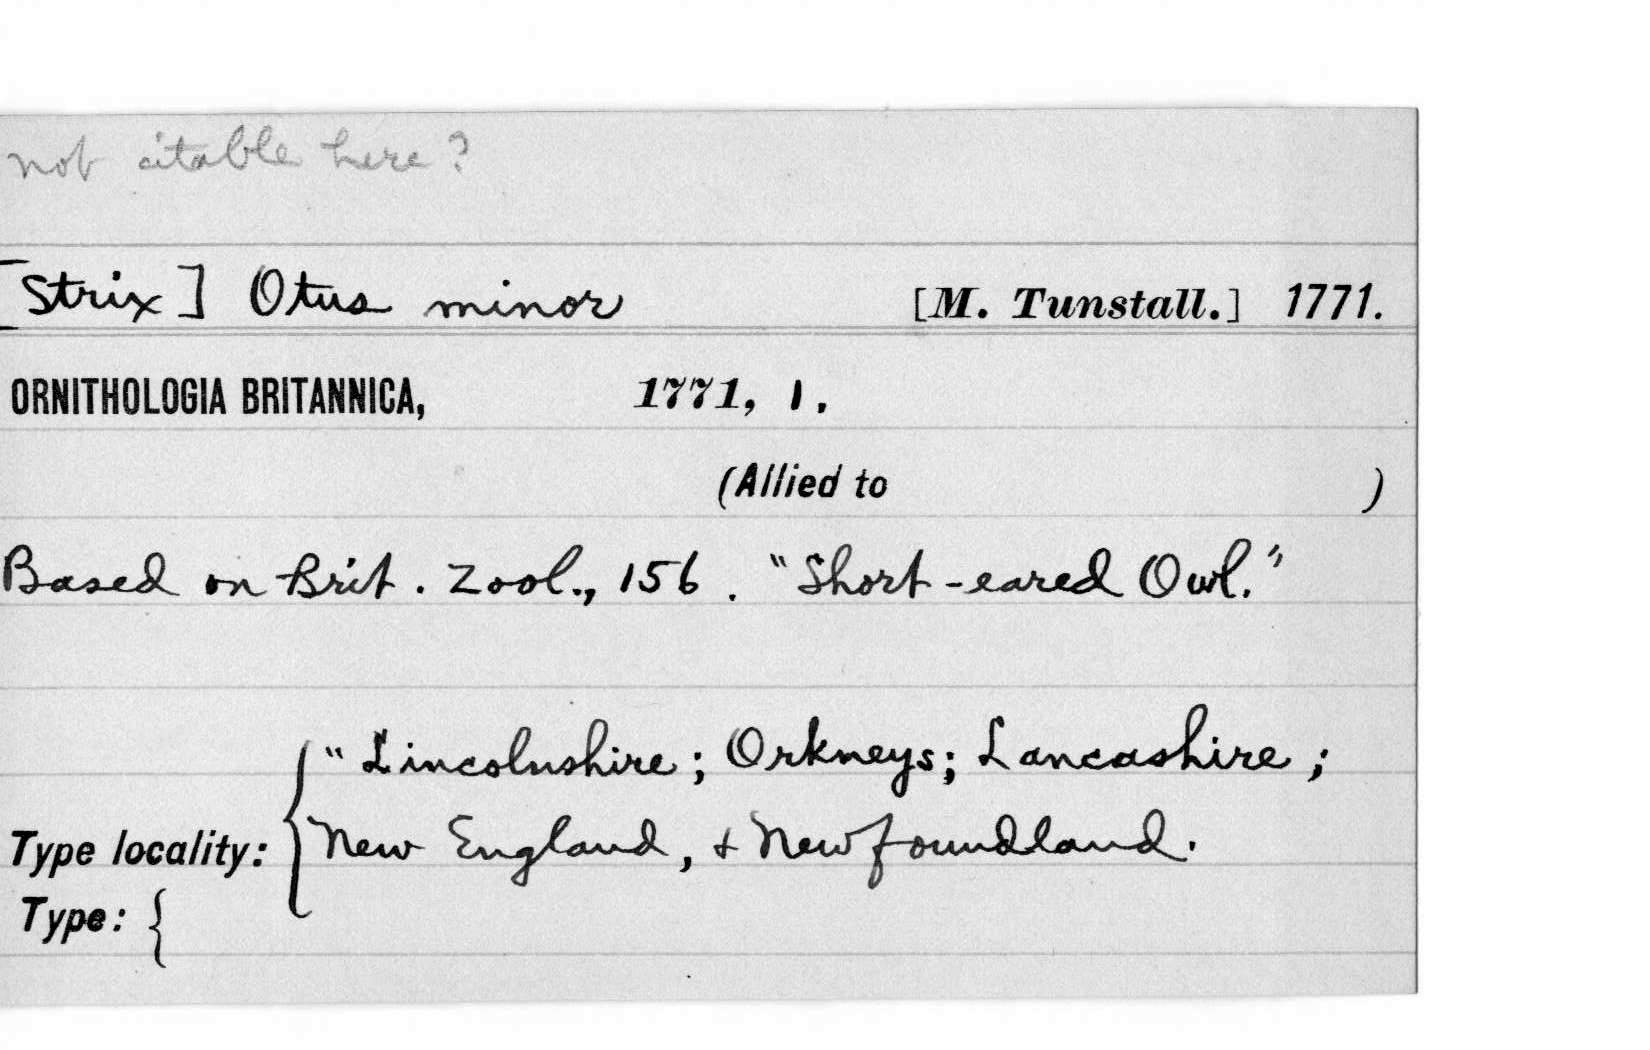 not citable here?
[Strix] Otus minor [M. Tunstall.] 1771.
ORNITHOLOGIA BRITANNICA, 1771, 1.
(Allied to )
Based on Brit. Zool., 156. "Short-eared Owl."
"Lincolnshire; Orkneys; Lancashire;
Type locality: { New England, + Newfoundland.
Type: {